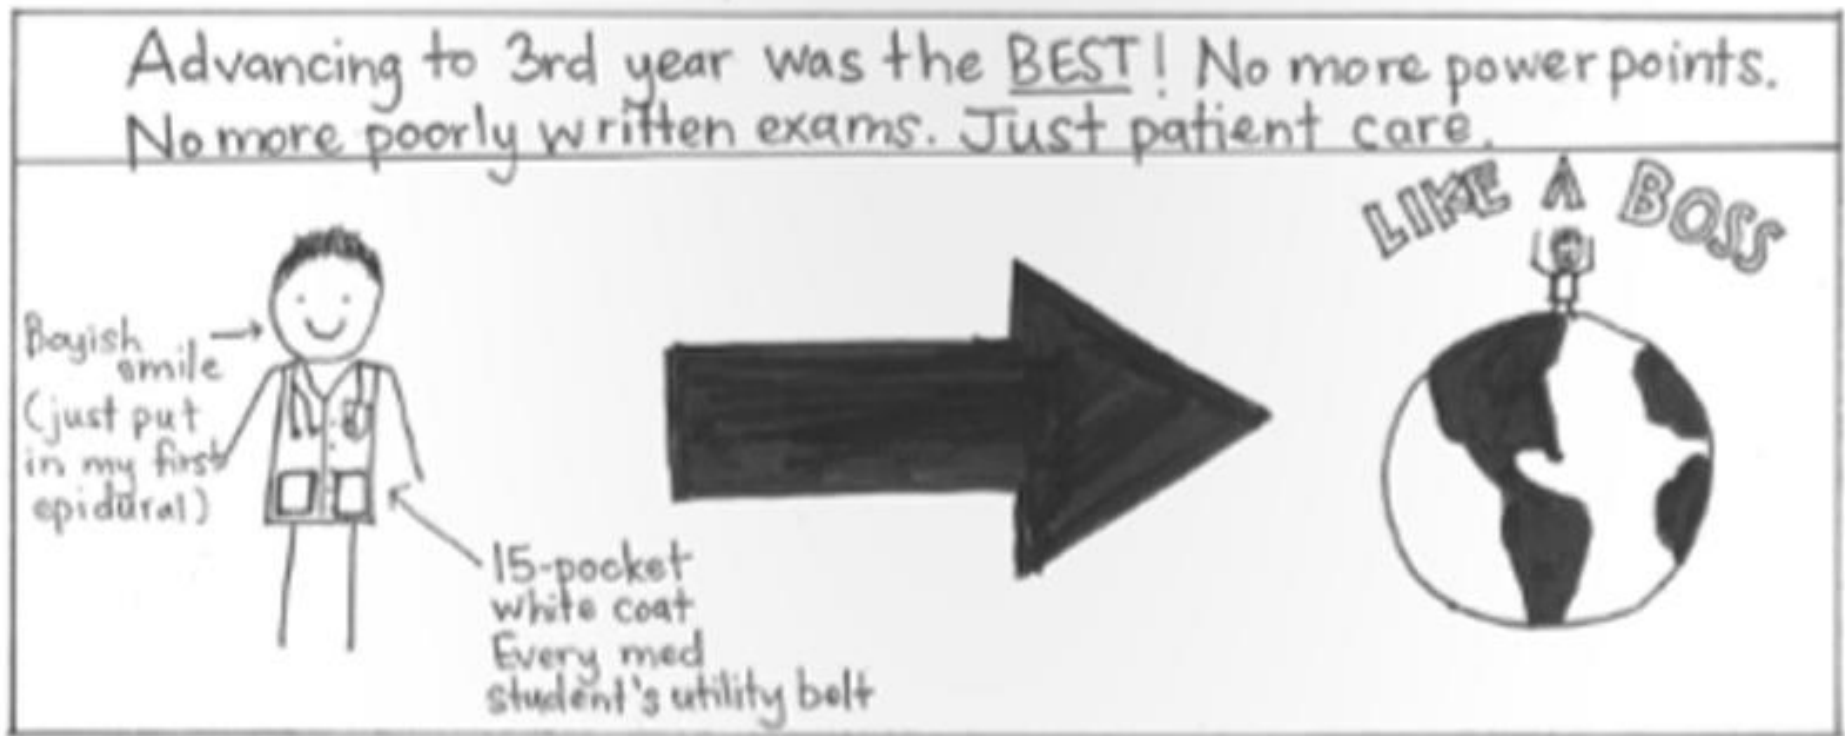 Advancing to 3rd year was the BEST! No more powerpoints.
No more poorly written exams. Just patient care.
LIKE A BOSS
Boyish
smile
(just put
in my first
epidural)
15-pocket
white coat
Every med
student's utility belt